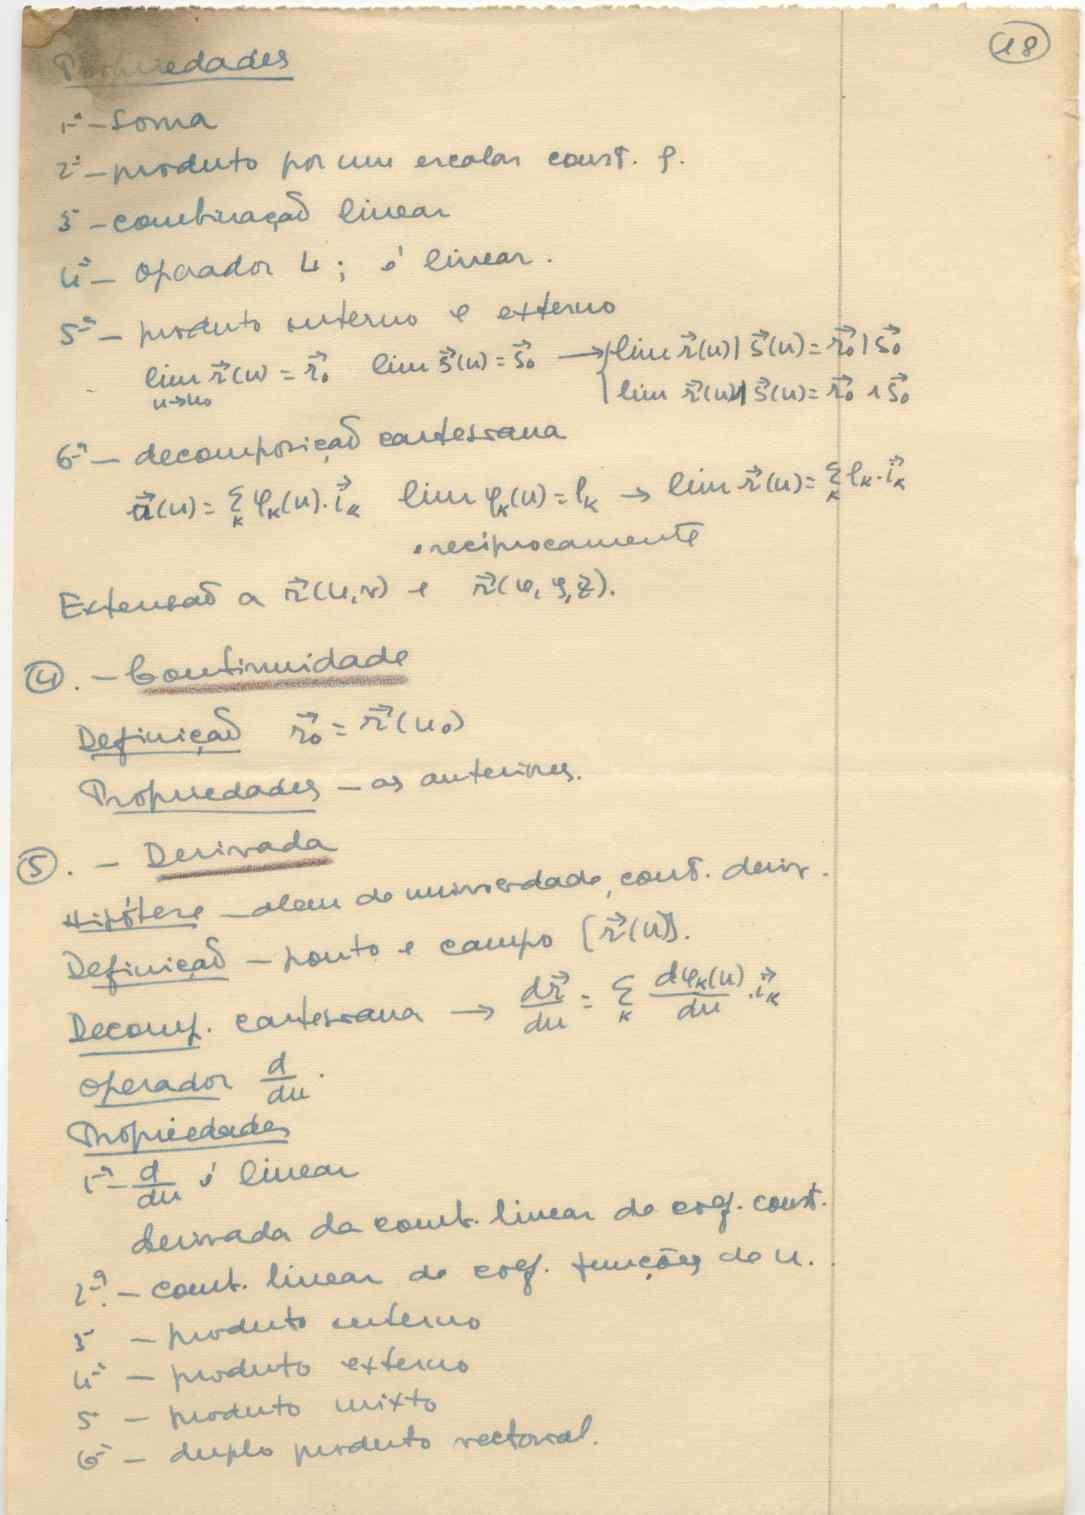 18
Propriedades
1ª - Soma
2ª - produto por um escalar const. ρ.
3ª - combinação linear
4ª - operador L; é linear.
5ª - produto interno e externo
lim r⃗(u) = r⃗₀ lim s⃗(u) = s⃗₀ → { lim r⃗(u) | s⃗(u) = r⃗₀ | s⃗₀
u→u₀ lim r⃗(u) ∧ s⃗(u) = r⃗₀ ∧ s⃗₀
6ª - decomposição cartesiana
r⃗(u) = Σₖ φₖ(u). i⃗ₖ lim φₖ(u) = lₖ → lim r⃗(u) = Σₖ lₖ. i⃗ₖ
e reciprocamente
Extensão a r⃗(u,v) e r⃗(φ, ρ, z).
④. - Continuidade
Definição r⃗₀ = r⃗(u₀)
Propriedades - as anteriores.
⑤. - Derivada
Hipótese - alem de univocidade, cont. deriv.
Definição - ponto e campo [r⃗(u)]'.
Decomp. cartesiana → dr⃗/du = Σₖ dφₖ(u)/du . i⃗ₖ
Operador d/du.
Propriedades
1ª - d/du é linear
derivada da comb. linear de coef. const.
2ª. - comb. linear de coef. funções de u.
3ª - produto interno
4ª - produto externo
5 - produto mixto
6ª - duplo produto vectorial.